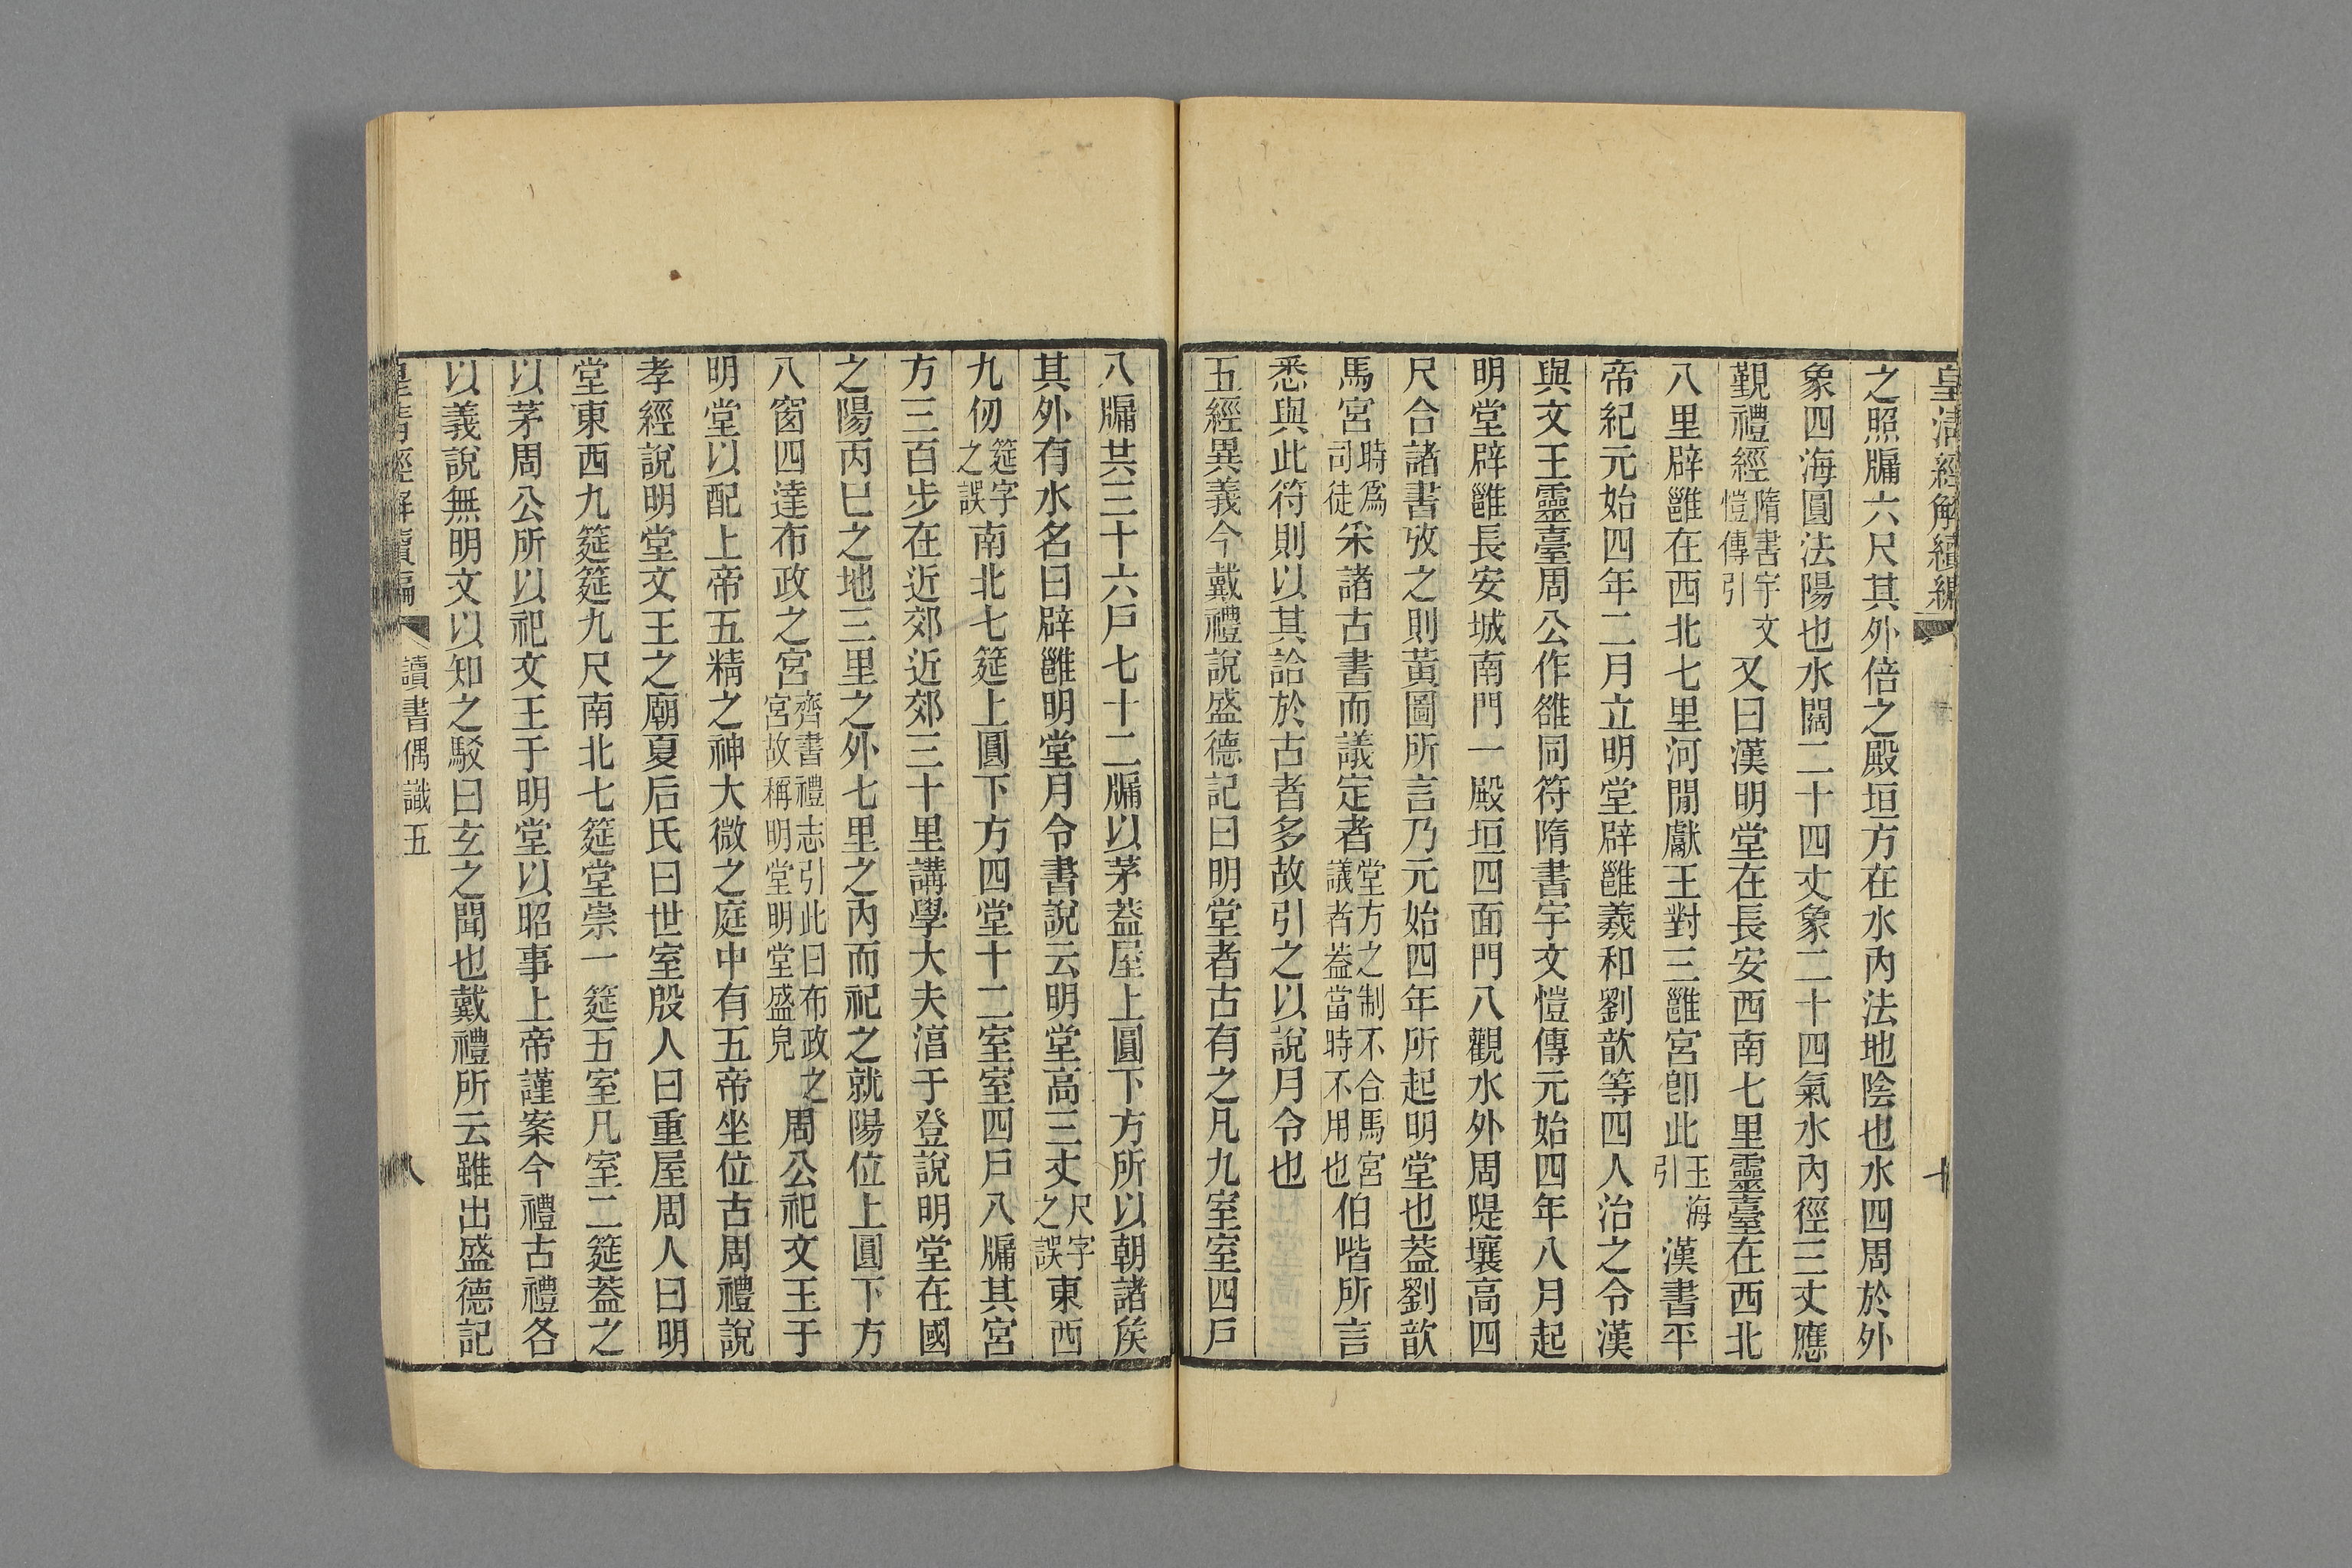 皇淸經解續編
之照牖六尺其外倍之殿垣方在水內法地陰也水四周於外
象四海圓法陽也水闊二十四丈象二十四氣水內徑三丈應
覲禮經隋書宇文愷傳引又曰漢明堂在長安西南七里靈臺在西北
八里辟雝在西北七里河閒獻王對三雝宮卽此玉海引漢書平
帝紀元始四年二月立明堂辟雝羲和劉歆等四人治之令漢
與文王靈臺周公作雒同符隋書宇文愷傳元始四年八月起
明堂辟雝長安城南門一殿垣四面門八觀水外周隄壤高四
尺合諸書攷之則黃圖所言乃元始四年所起明堂也蓋劉歆
馬宮時爲司徒采諸古書而議定者堂方之制不合馬宮議者蓋當時不用也伯喈所言
悉與此符則以其詥於古者多故引之以說月令也
五經異義今戴禮說盛德記曰明堂者古有之凡九室室四戶
八牖共三十六戶七十二牖以茅蓋屋上圓下方所以朝諸矦
其外有水名曰辟雝明堂月令書說云明堂高三丈尺字之誤東西
九仞筵字之誤南北七筵上圓下方四堂十二室室四戶八牖其宮
方三百步在近郊近郊三十里講學大夫湻于登說明堂在國
之陽丙巳之地三里之外七里之內而祀之就陽位上圓下方
八窗四達布政之宮齊書禮志引此曰布政之宮故稱明堂明堂盛皃周公祀文王于
明堂以配上帝五精之神大微之庭中有五帝坐位古周禮說
孝經說明堂文王之廟夏后氏曰世室殷人曰重屋周人曰明
堂東西九筵筵九尺南北七筵堂崇一筵五室凡室二筵蓋之
以茅周公所以祀文王于明堂以昭事上帝謹案今禮古禮各
以義說無明文以知之駁曰玄之聞也戴禮所云雖出盛德記
皇淸經解續編
讀書偶識五
八